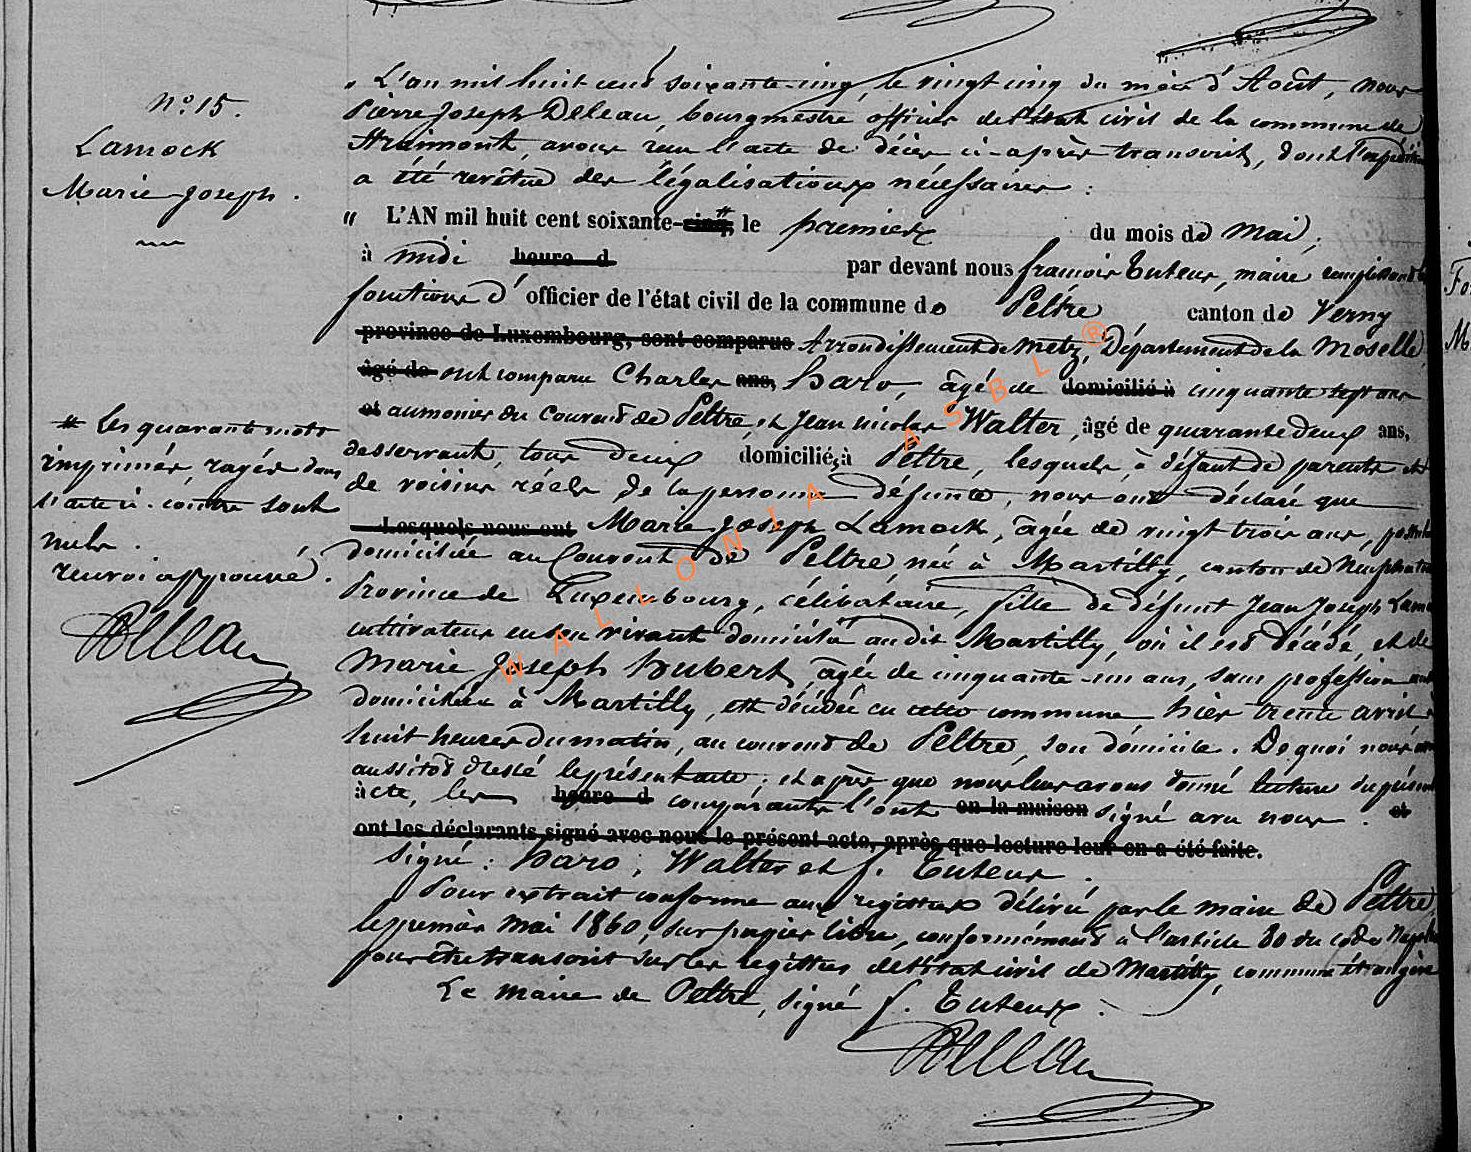 N° 15.
Lamock
Marie-Joseph.
" L'an mil huit cent soixante-cinq, le vingt cinq du mois d'Août, nous
Pierre Joseph Deleau, bourgmestre officier de l'état civil de la commune de
Straimont, avons reçu l'acte de décès ci-après transcrit, dont l'expédition
a été revêtue des légalisations nécessaires :
" L'AN mil huit cent soixante-cinq, # le premier du mois de Mai,
à midi heure d par devant nous françois Tuteur, maire remplissant les
fonctions d'officier de l'état civil de la commune de Peltre canton de Verny
province de Luxembourg, sont comparus Arrondissement de Metz, Département de la Moselle,
âgé de ont comparu Charles ans, Haro, âgé de domicilié à cinquante sept ans
et aumonier du Couvent de Peltre, et Jean nicolas Walter, âgé de quarante deux ans,
desservant, tous deux domiciliés à Peltre, lesquels, à défaut de parents et
de voisins réels de la personne défunte, nous ont déclaré que
Lesquels nous ont Marie Joseph Lamock, âgée de vingt trois ans,
domiciliée au Couvent de Peltre, née à Martilly, canton de Neufchateau
Province de Luxembourg, célibataire, fille de défunt Jean Joseph Lamock
cultivateur en son vivant domicilié audit Martilly, où il est décédé, et de
Marie Joseph Hubert, âgée de cinquante-un ans, sans profession
domiciliée à Martilly, est décédée en cette commune hier trente avril à
huit heures du matin, au couvent de Peltre, son domicile. De quoi nous avons
aussitôt dressé le présent acte ; et après que nous leur avons donné lecture du présent
acte, les heure d comparants l'ont en la maison signé avec nous. et
ont les déclarants signé avec nous le présent acte, après que lecture leur en a été faite.
Signé : Haro ; Walter et f. Tuteur.
Pour extrait conforme aux registres délivré par le maire de Peltre,
le premier mai 1860, sur papier libre, conformément à l'article 80 du code Napoléon
pour être transcrit sur les registres de l'état civil de Martilly, commune étrangère
Le maire de Peltre, signé f. Tuteur.
Deleau
# Les quarante mots
imprimés rayés dans
l'acte ci-contre sont
nuls.
renvoi approuvé.
Deleau
WALLONIA ASBL ®
Fo
M